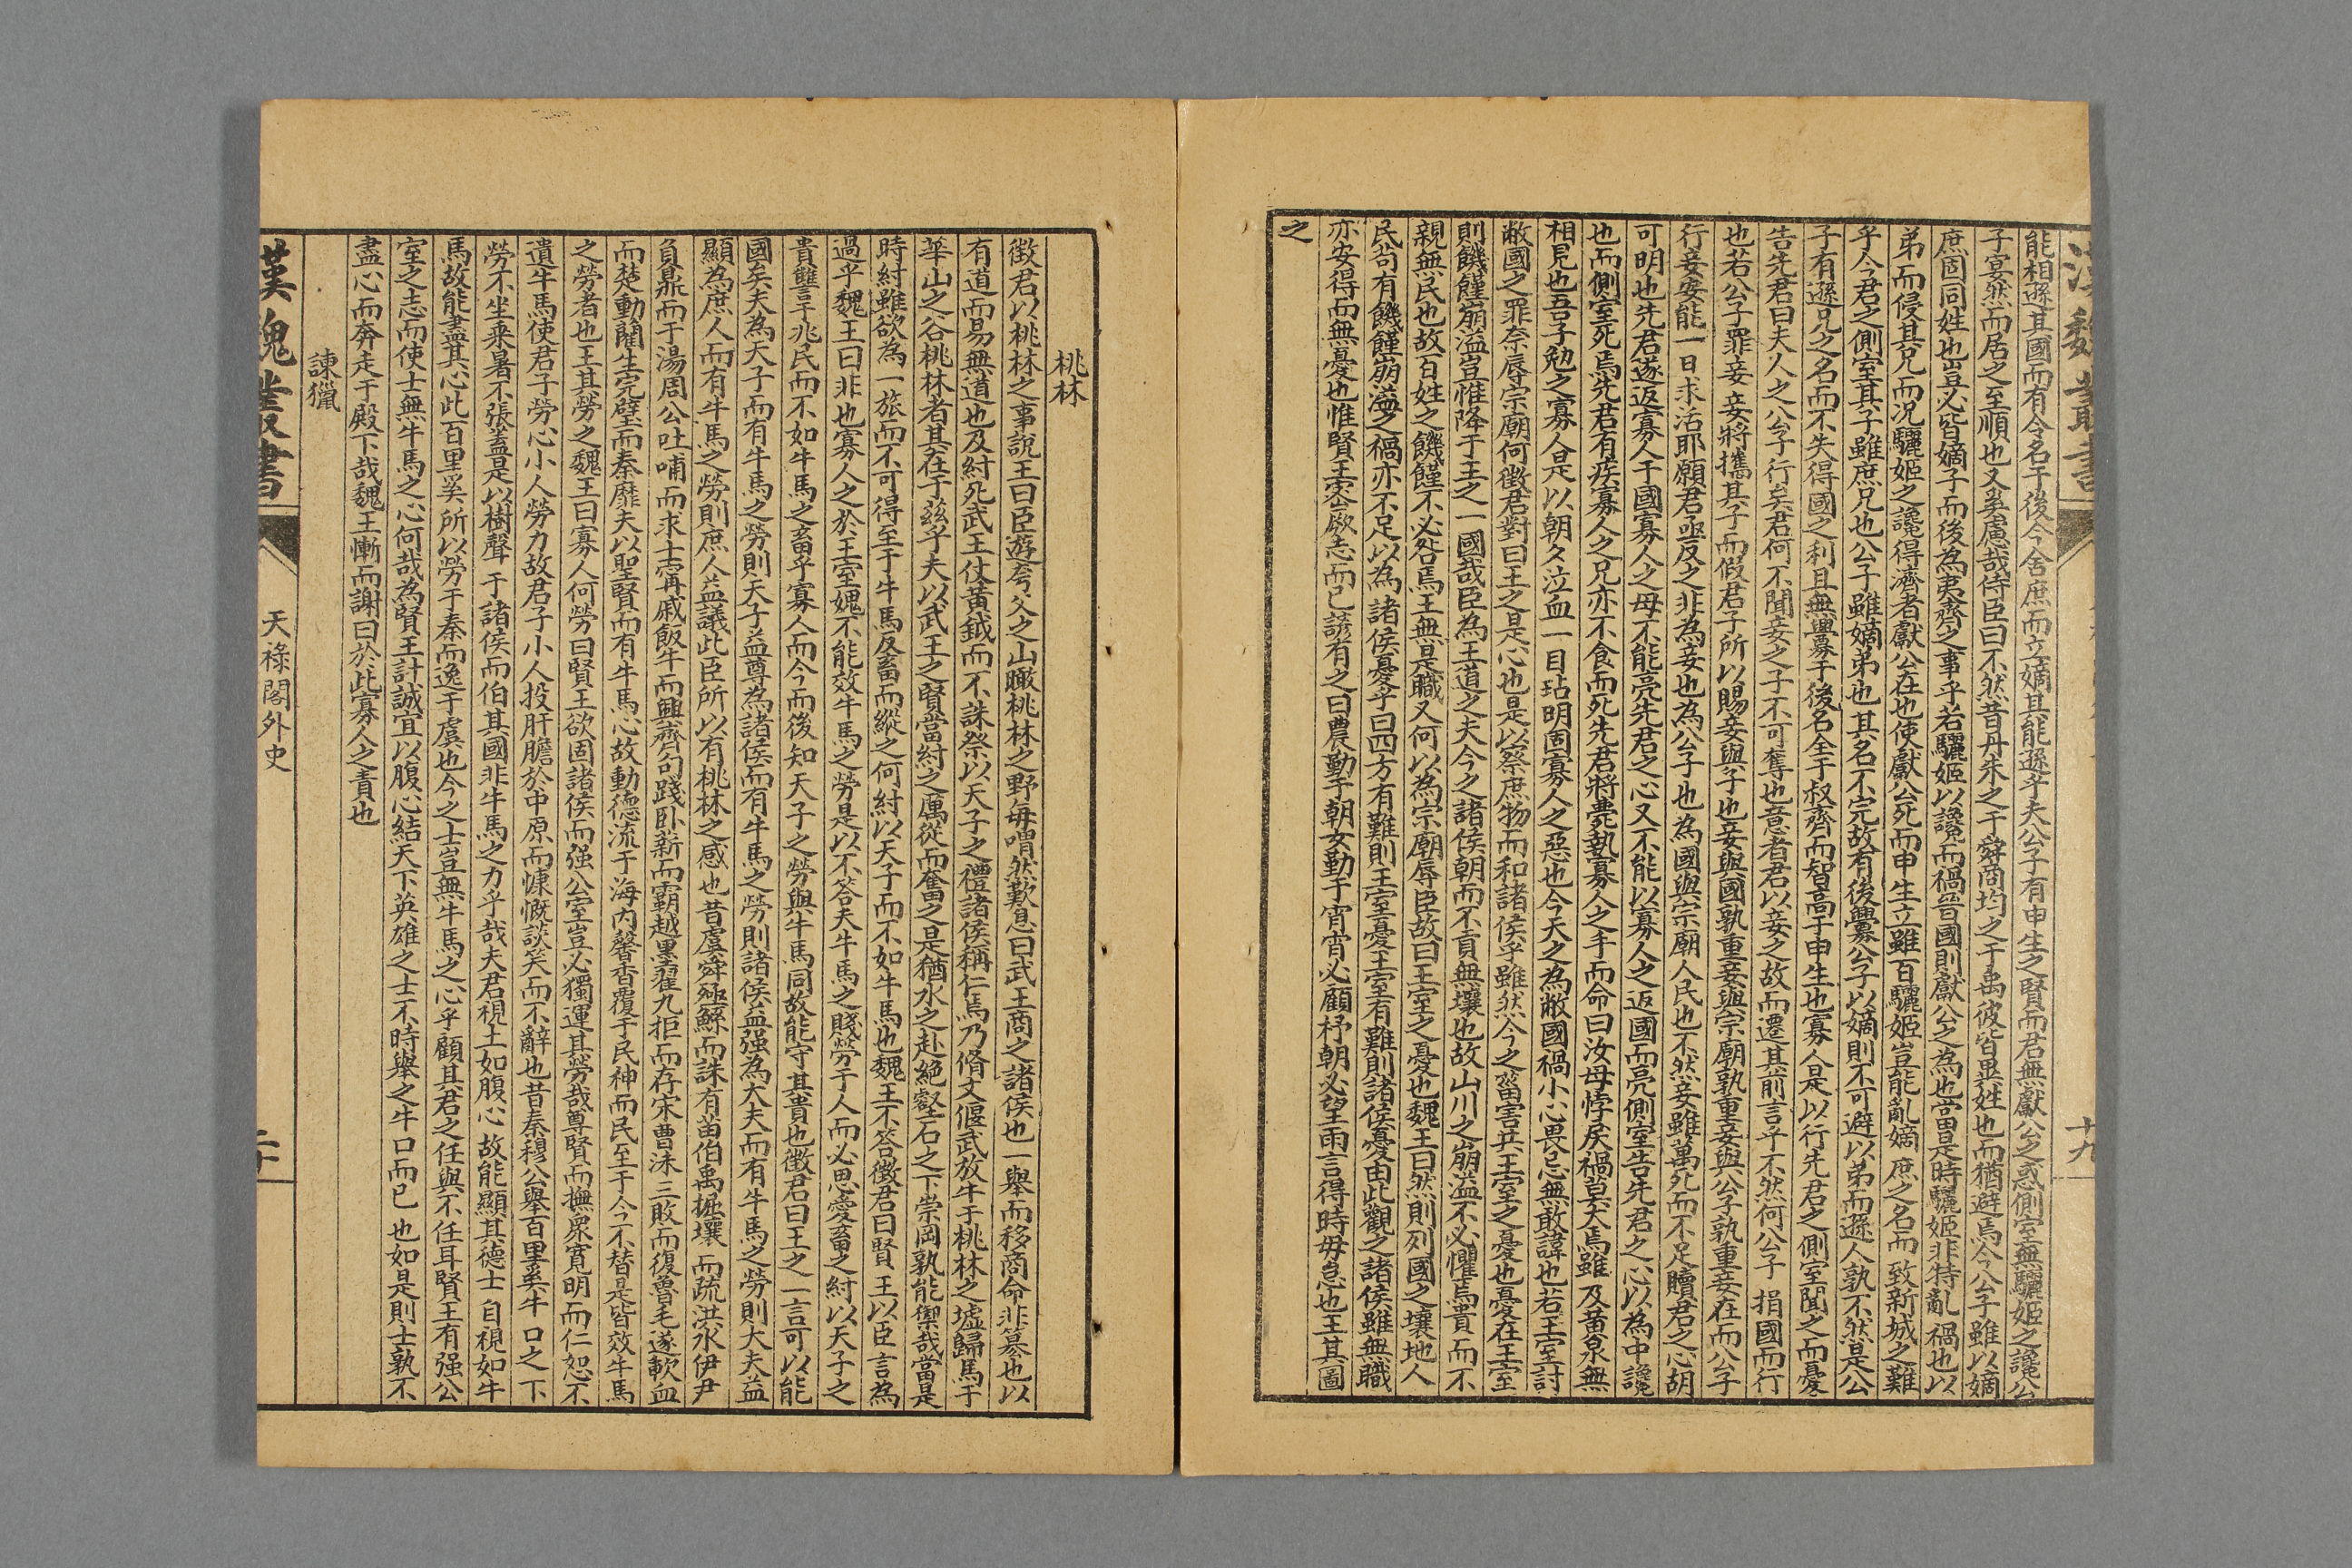 漢魏叢書
十九
能相遜其國而有令名于後今舍庶而立嫡其能遜乎夫公子有申生之賢而君無獻公之惑側室無驪姬之讒公
子宴然而居之至順也又奚慮哉侍臣曰不然昔丹朱之于舜商均之于禹彼皆異姓也而猶避焉今公子雖以嫡
庶固同姓也豈必皆嫡子而後為夷齊之事乎若驪姬以讒而禍晉國則獻公之為也當是時驪姬非特亂禍也以
弟而侵其兄而况驪姬之讒得濟者獻公在也使獻公死而申生立雖百驪姬豈能亂嫡庶之名而致新城之難
乎今君之側室其子雖庶兄也公子雖嫡弟也其名不完故有後釁公子以嫡則不可避以弟而遜人孰不然是公
子有遜兄之名而不失得國之利且無釁于後名全于叔齊而智高于申生也寡人是以行先君之側室聞之而憂
告先君曰夫人之公子行矣君何不聞妾之子不可奪也意者君以妾之故而遷其前言乎不然何公子捐國而行
也若公子罪妾妾將攜其子而假君子所以賜妾與子也妾與國孰重妾與宗廟孰重妾與公子孰重妾在而公子
行妾安能一日求活耶願君亟反之非為妾也為公子也為國與宗廟人民也不然妾雖萬死而不足贖君之心胡
可明也先君遂返寡人于國寡人之母不能亮先君之心又不能以寡人之返國而亮側室告先君之心以為中讒
也而側室死焉先君有疾寡人之兄亦不食而死先君將薨執寡人之手而命曰汝母悖戾禍莫大焉雖及黄泉無
相見也吾子勉之寡人是以朝夕泣血一目玷明固寡人之惡也今天之為敝國禍小心畏忌無敢諱也若王室討
敝國之罪奈辱宗廟何徵君對曰王之是心也是以察庶物而和諸侯乎雖然今之菑害共王室之憂也憂在王室
則饑饉崩溢豈惟降于王之一國哉臣為王道之夫今之諸侯朝而不貢無壤也故山川之崩溢不必懼焉貴而不
親無民也故百姓之饑饉不必咎焉王無是職又何以為宗廟辱臣故曰王室之憂也魏王曰然則列國之壤地人
民苟有饑饉崩溢之禍亦不足以為諸侯憂乎曰四方有難則王室憂王室有難則諸侯憂由此觀之諸侯雖無職
亦安得而無憂也惟賢王啟志而已諺有之曰農勤于朝女勤于宵宵必顧杼朝必望雨言得時毋怠也王其圖
之
桃林
徵君以桃林之事說王曰臣遊夸父之山瞰桃林之野每喟然歎息曰武王商之諸侯也一舉而移商命非篡也以
有道而易無道也及紂死武王仗黃鉞而不誅祭以天子之禮諸侯稱仁焉乃脩文偃武放牛于桃林之墟歸馬于
華山之谷桃林者其在于兹乎夫以武王之賢當紂之厲從而奮之是猶水之赴絕壑石之下崇岡孰能禦哉當是
時紂雖欲為一旅而不可得至于牛馬反畜而縱之何紂以天子而不如牛馬也魏王不答徵君曰賢王以臣言為
過乎魏王曰非也寡人之於王室媿不能效牛馬之勞是以不答夫牛馬之賤勞于人而必思愛畜之紂以天子之
貴讐于兆民而不如牛馬之畜乎寡人而今而後知天子之勞與牛馬同故能守其貴也徵君曰王之一言可以能
國矣夫為天子而有牛馬之勞則天子益尊為諸侯而有牛馬之勞則諸侯益强為大夫而有牛馬之勞則大夫益
顯為庶人而有牛馬之勞則庶人益議此臣所以有桃林之感也昔虞舜殛鯀而誅有苗伯禹堀壤而疏洪水伊尹
負鼎而于湯周公吐哺而求士甯戚飯牛而興齊句踐卧薪而霸越墨翟九拒而存宋曹沫三敗而復魯毛遂歃血
而楚動藺生完璧而秦靡夫以聖賢而有牛馬心故動德流于海内馨香覆于民神而民至于今不替是皆效牛馬
之勞者也王其勞之魏王曰寡人何勞曰賢王欲固諸侯而强公室豈必獨運其勞哉尊賢而撫衆寬明而仁恕不
遺牛馬使君子勞心小人勞力故君子小人投肝膽於中原而慷慨談笑而不辭也昔秦穆公舉百里奚牛口之下
勞不坐乘暑不張蓋是以樹聲于諸侯而伯其國非牛馬之力乎哉夫君視士如腹心故能顯其德士自視如牛
馬故能盡其心此百里奚所以勞于秦而逸于虞也今之士豈無牛馬之心乎顧其君之任與不任耳賢王有强公
室之志而使士無牛馬之心何哉為賢王計誠宜以腹心結天下英雄之士不時舉之牛口而已也如是則士孰不
盡心而奔走于殿下哉魏王慚而謝曰於此寡人之責也
諫獵
漢魏叢書
天祿閣外史
二十